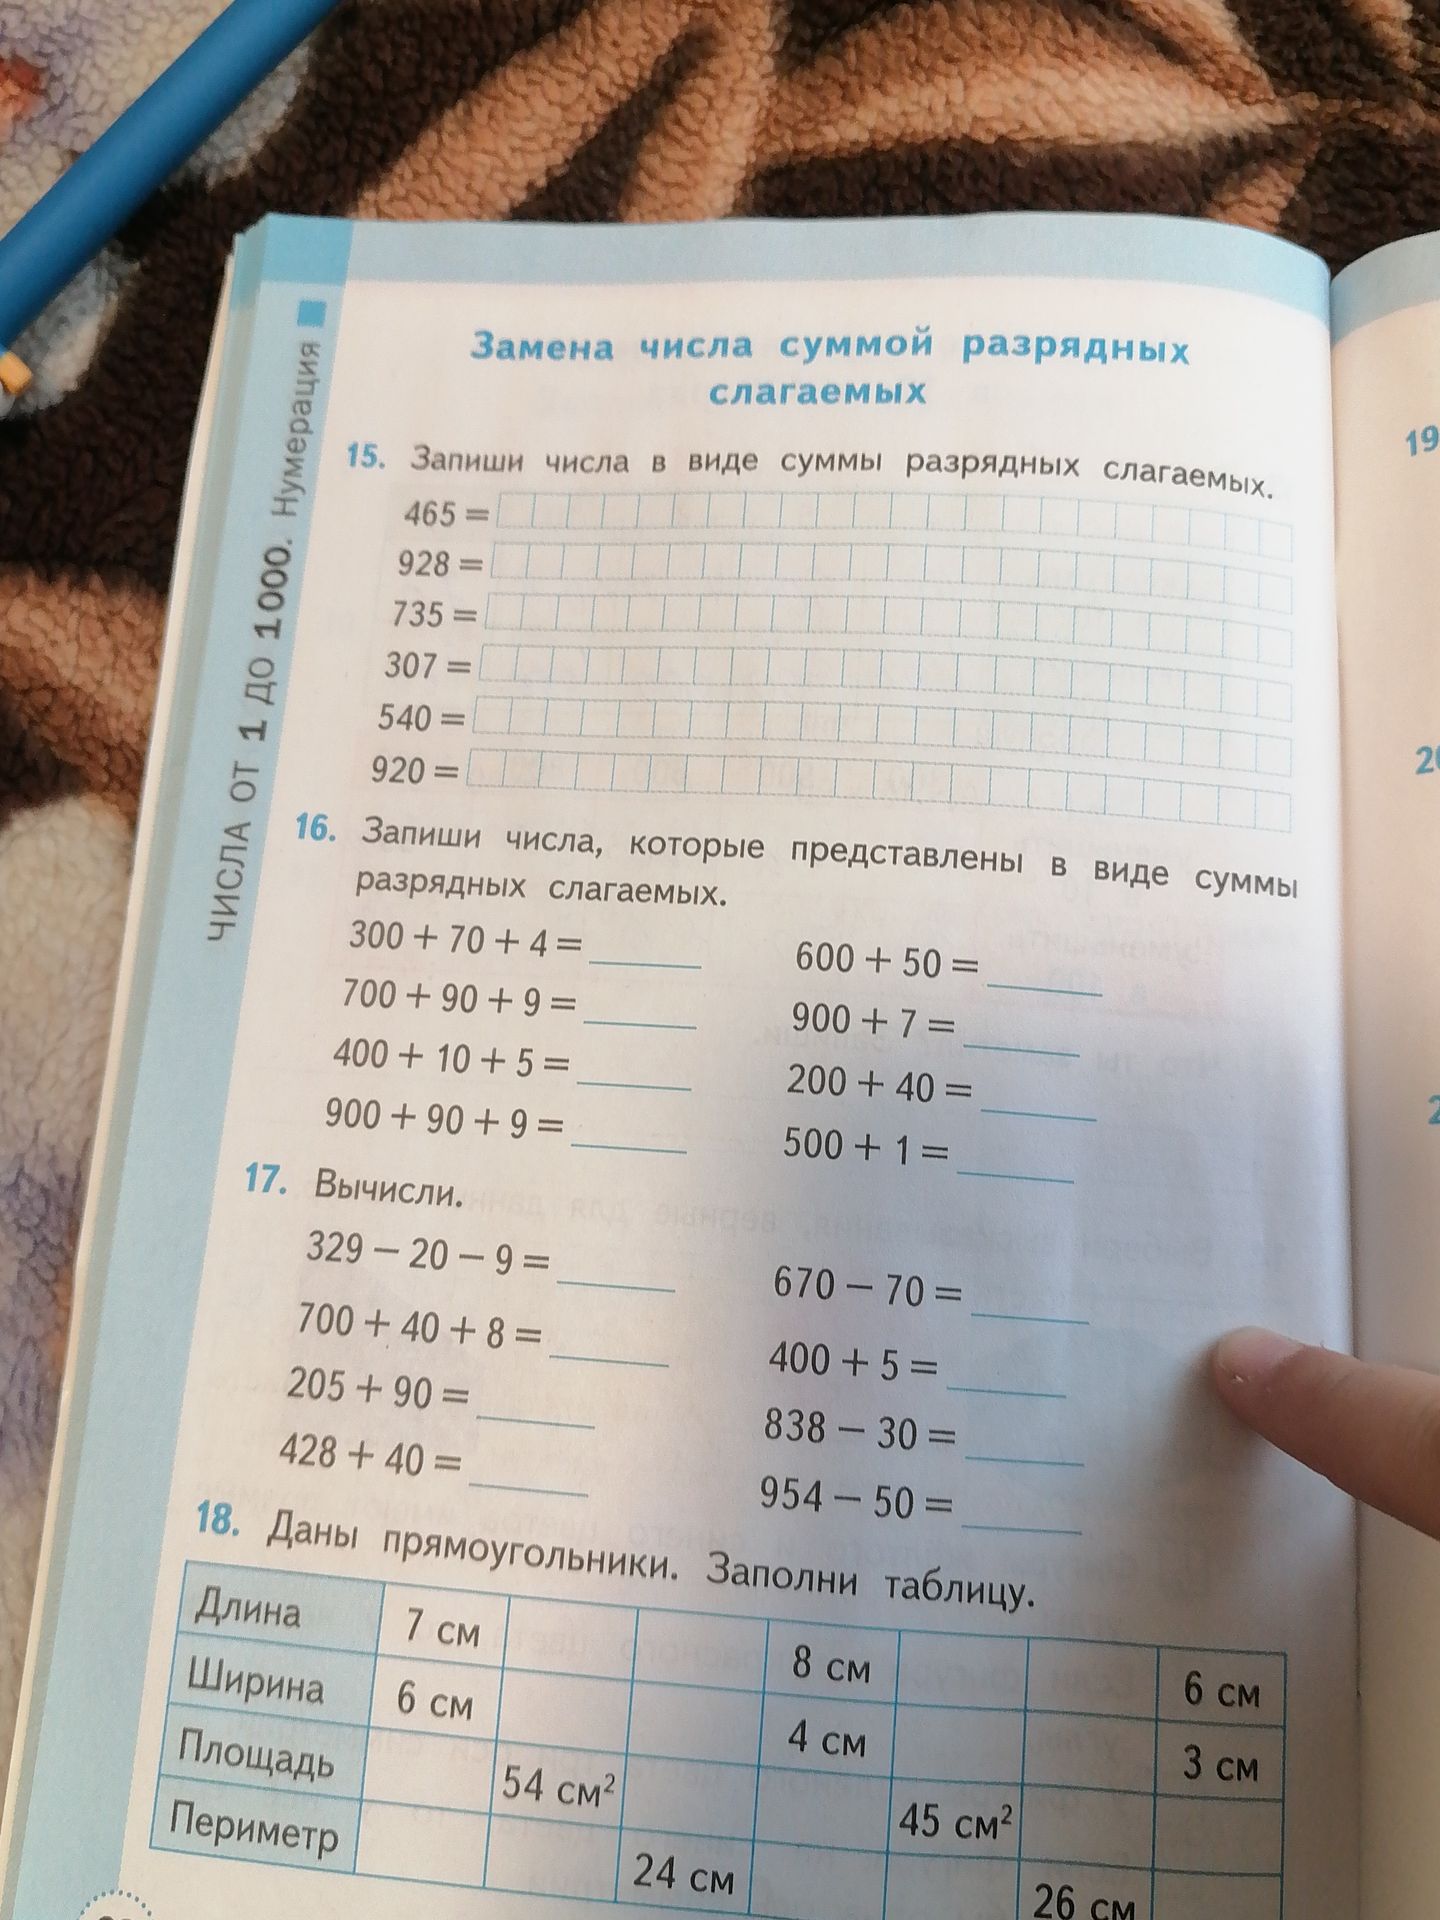 ЧИСЛА ОТ 1 ДО 1000. Нумерация
Замена числа суммой разрядных
слагаемых
15. Запиши числа в виде суммы разрядных слагаемых.
465 =
928 =
735 =
307 =
540 =
920 =
16. Запиши числа, которые представлены в виде суммы
разрядных слагаемых.
300 + 70 + 4 = 600 + 50 =
700 + 90 + 9 = 900 + 7 =
400 + 10 + 5 = 200 + 40 =
900 + 90 + 9 = 500 + 1 =
17. Вычисли.
329 − 20 − 9 = 670 − 70 =
700 + 40 + 8 = 400 + 5 =
205 + 90 = 838 − 30 =
428 + 40 = 954 − 50 =
18. Даны прямоугольники. Заполни таблицу.
Длина 7 см 8 см 6 см
Ширина 6 см 4 см 3 см
Площадь 54 см² 45 см²
Периметр 24 см 26 см
19